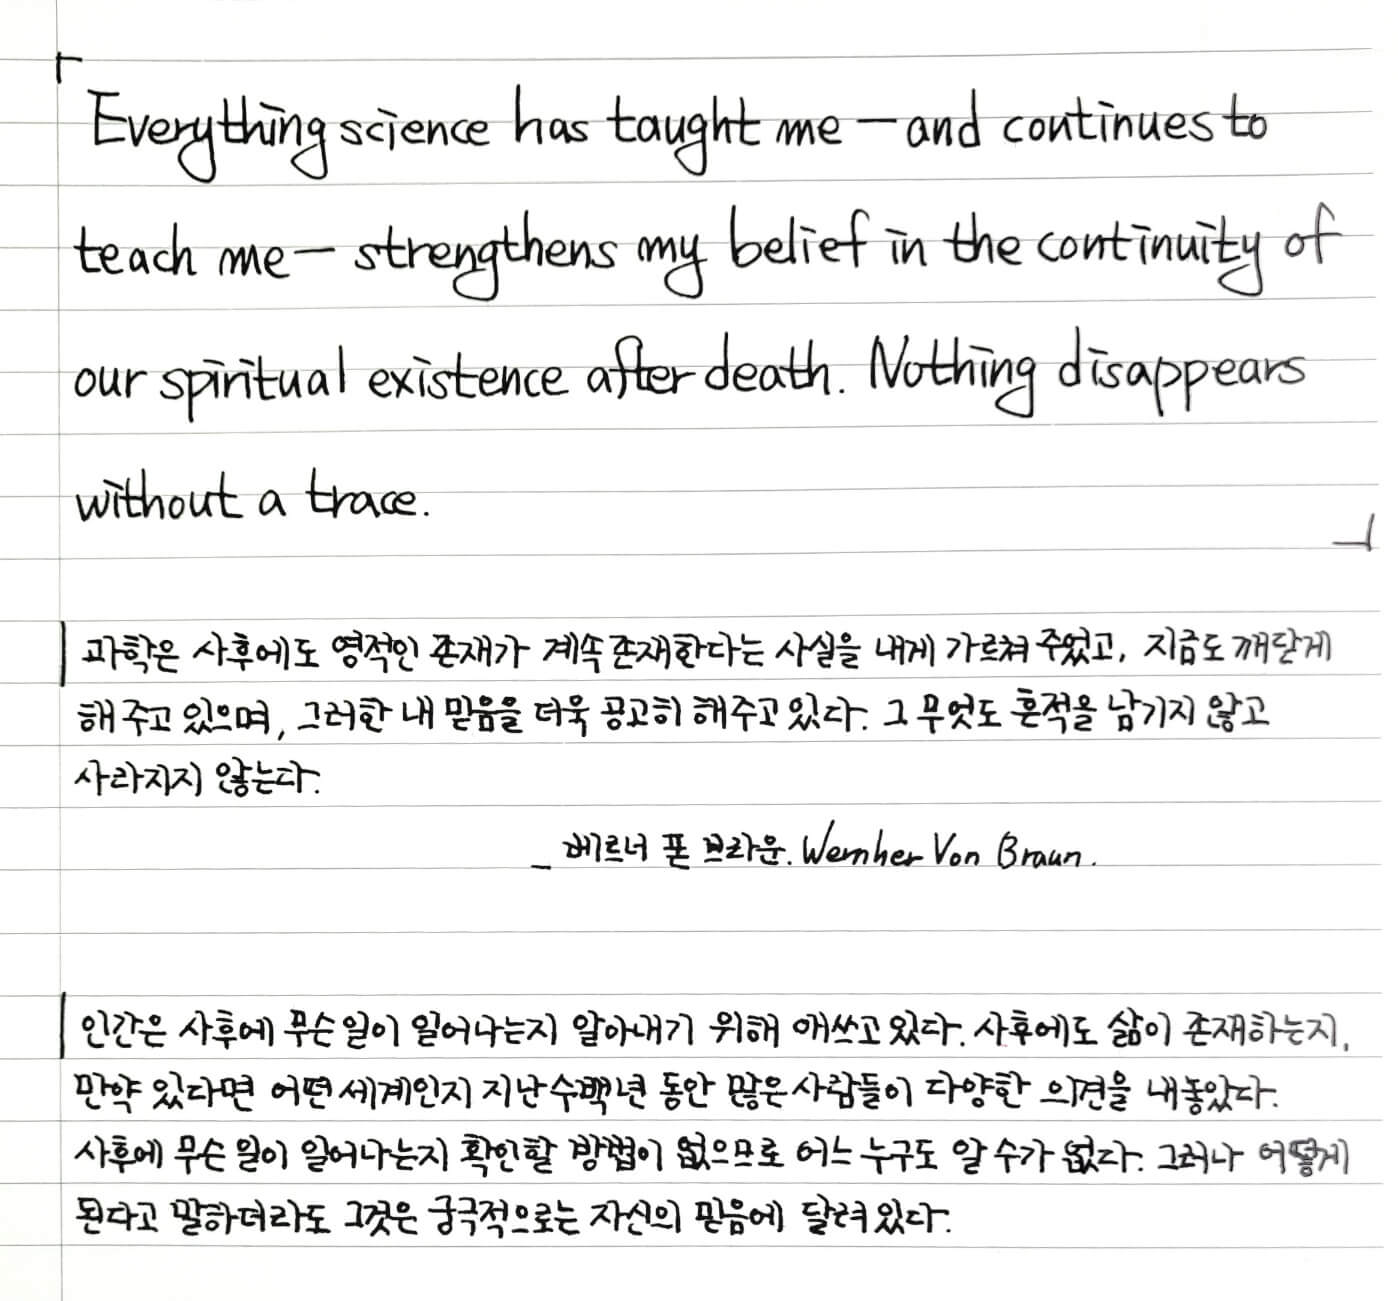 「Everything science has taught me — and continues to
teach me — strengthens my belief in the continuity of
our spiritual existence after death. Nothing disappears
without a trace.」
과학은 사후에도 영적인 존재가 계속 존재한다는 사실을 내게 가르쳐 주었고, 지금도 깨닫게
해 주고 있으며, 그러한 내 믿음을 더욱 공고히 해주고 있다. 그 무엇도 흔적을 남기지 않고
사라지지 않는다.
_ 베르너 폰 브라운. Wernher Von Braun.
인간은 사후에 무슨 일이 일어나는지 알아내기 위해 애쓰고 있다. 사후에도 삶이 존재하는지,
만약 있다면 어떤 세계인지 지난 수백 년 동안 많은 사람들이 다양한 의견을 내놓았다.
사후에 무슨 일이 일어나는지 확인할 방법이 없으므로 어느 누구도 알 수가 없다. 그러나 어떻게
된다고 말하더라도 그것은 궁극적으로는 자신의 믿음에 달려있다.